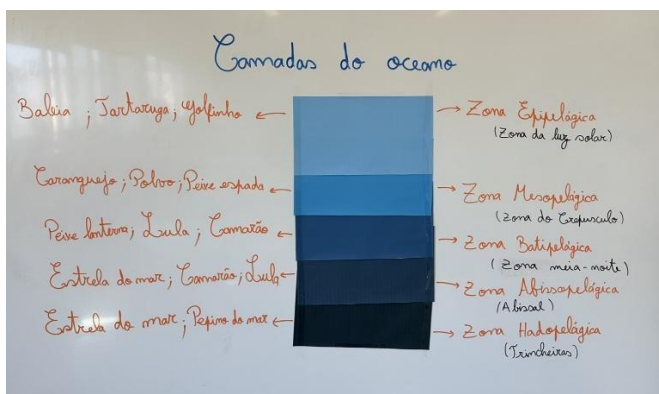 Camadas do oceano
Baleia ; Tartaruga ; Golfinho
Zona Epipelágica
(Zona da luz solar)
Caranguejo ; Polvo ; Peixe espada
Zona Mesopelágica
(Zona do Crepusculo)
Peixe lanterna ; Lula ; Camarão
Zona Batipelágica
(Zona meia-noite)
Estrela do mar ; Camarão ; Lula
Zona Abissopelágica
(Abissal)
Estrela do mar ; Pepino do mar
Zona Hadopelágica
(Trincheiras)